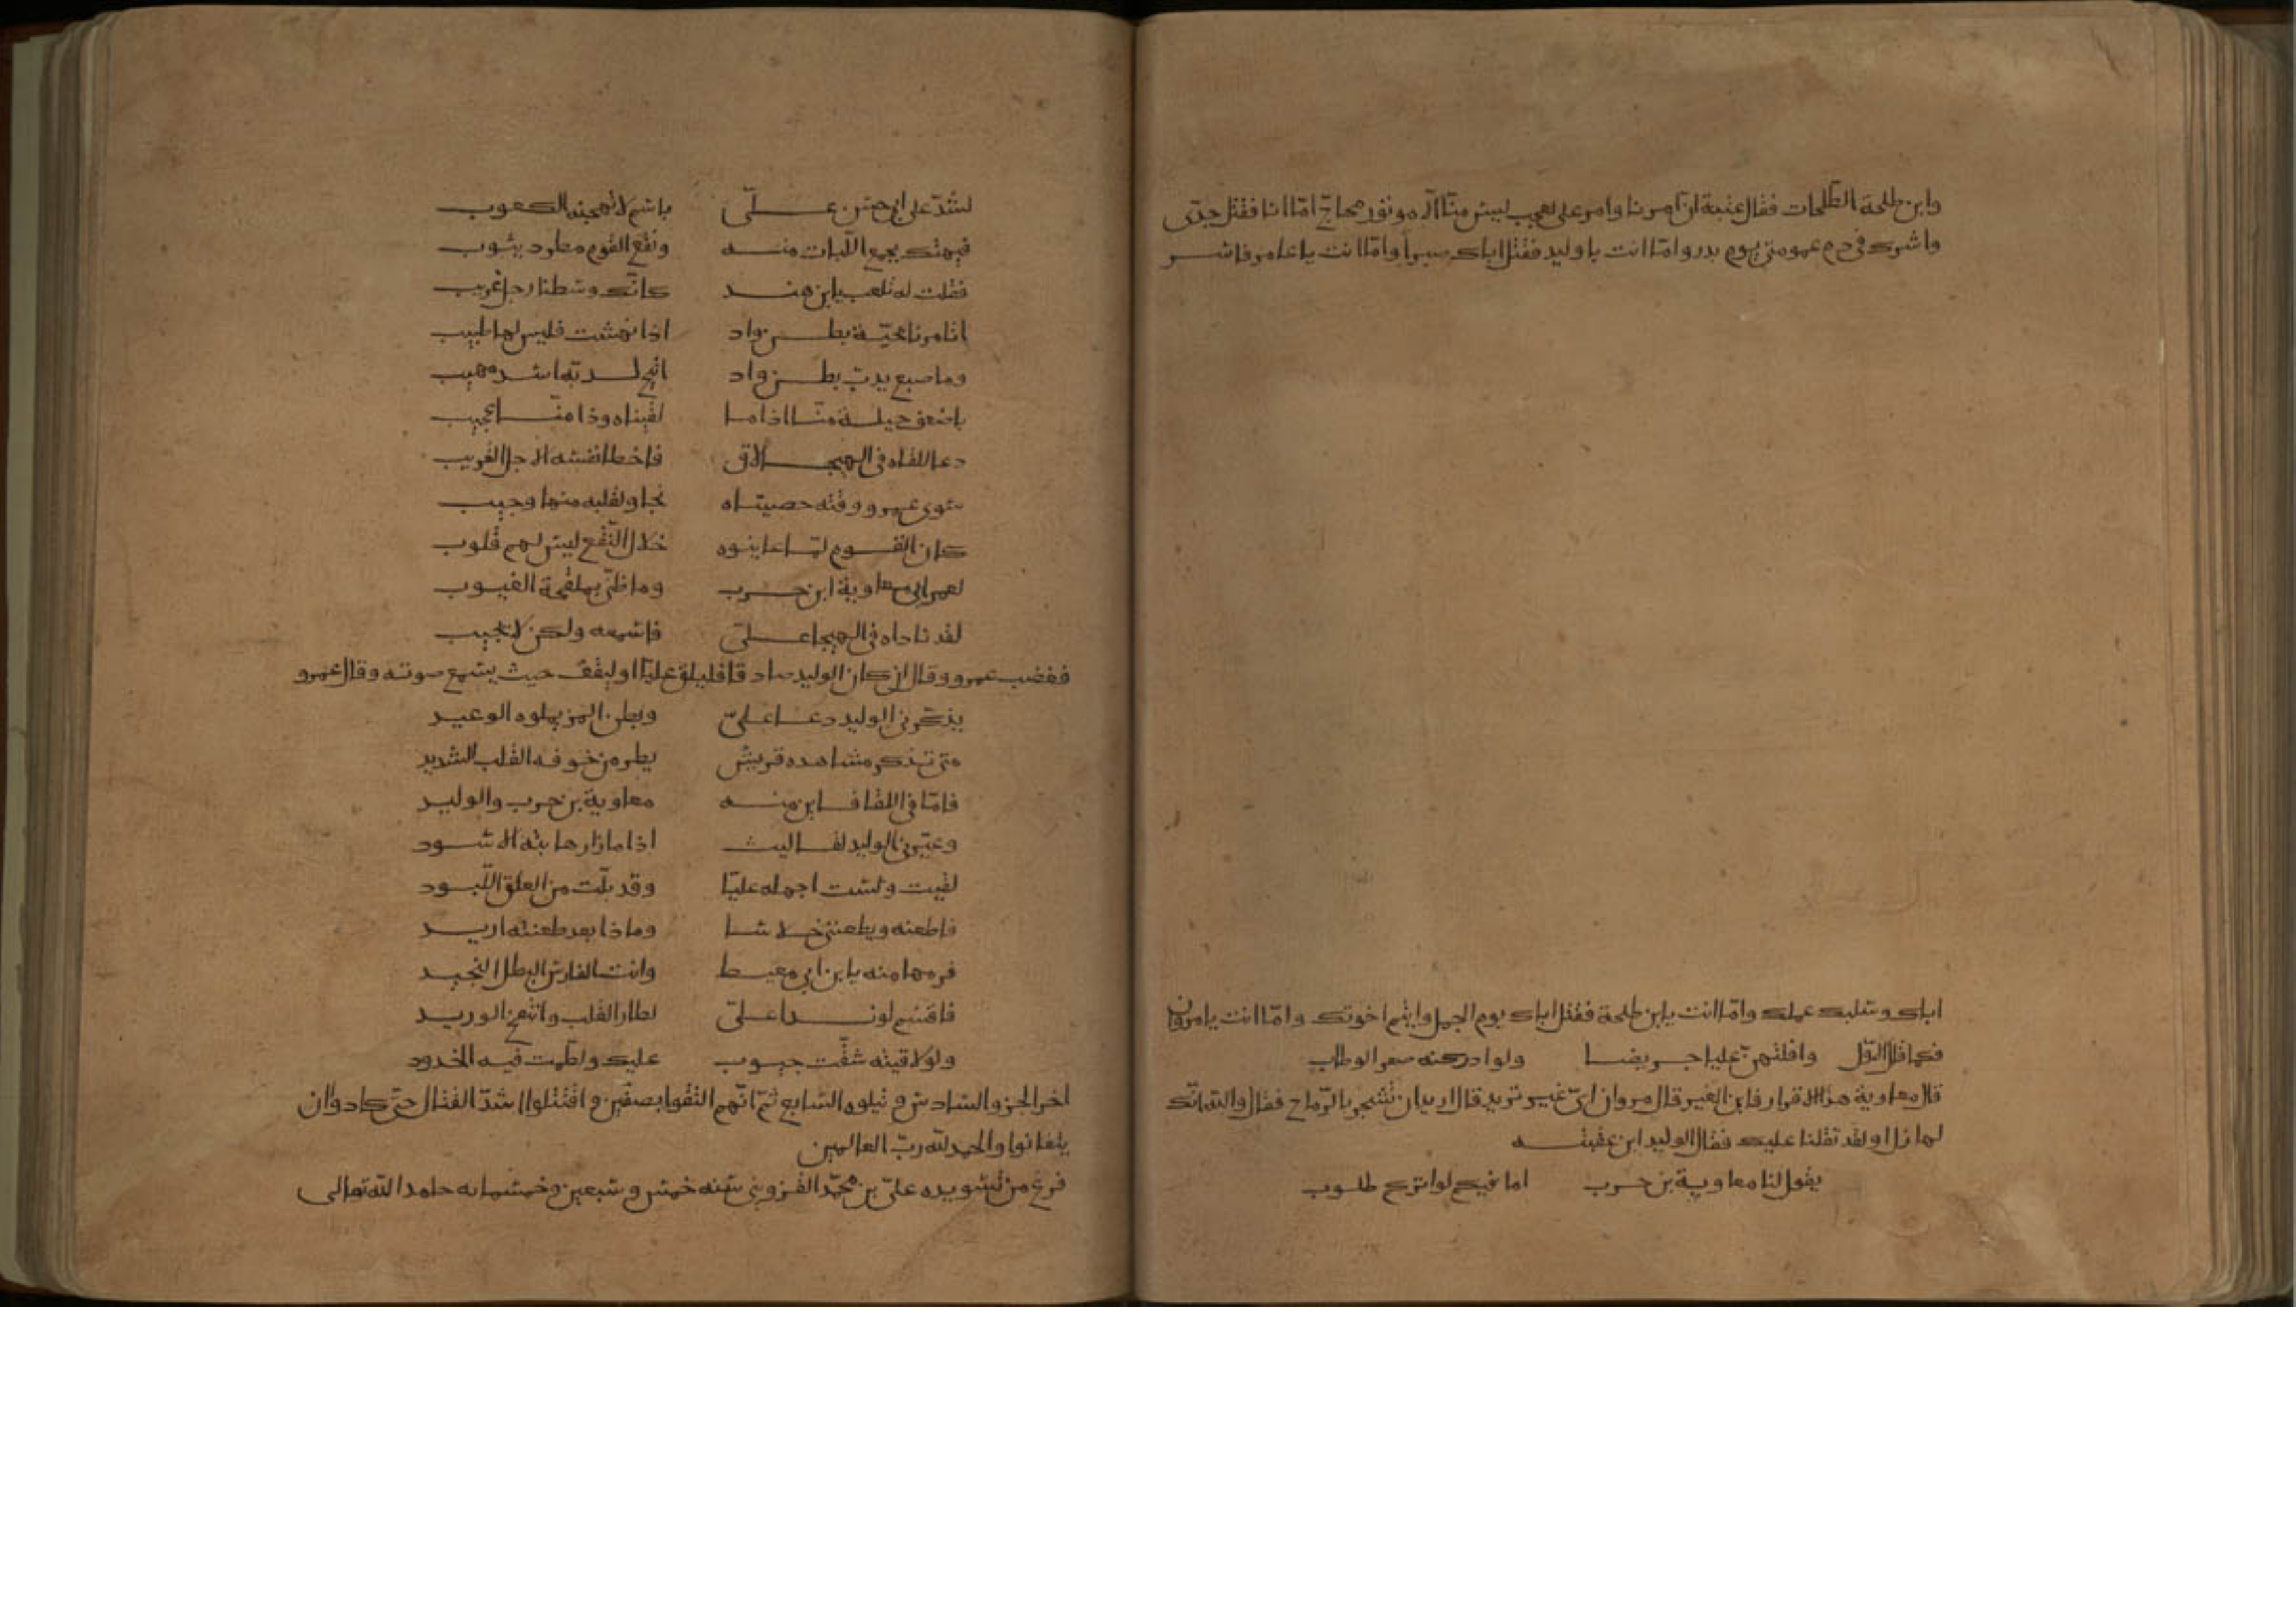 وابن طلحة الطلحات فقال عتبة ان امرنا وامر علي لعجب ليس منا الا موتور محاج اما انا فقتل جدى
واشرك في دم عمومتي يوم بدر واما انت يا وليد فقتل اباك صبرا واما انت يا عامر فاسر
اباك وسلبك عمك واما انت يا ابن طلحة فقتل اباك يوم الجمل وايتم اخوتك واما انت يا مروان
فكما قال الاول وافلتهن عليا جريضا ولو ادركنه صفر الوطاب
قال معاوية هذا الاقرار فاين الغير قال مروان اى غير تريد قال اريد ان تشجر بالرماح فقال والله انك
لهازل او لقد ثقلنا عليك فقال الوليد ابن عقبة
يقول لنا معاوية بن حرب اما فيكم لواتركم طلوب
لشد على ابي حسن علي باسمر لا تهجنه الكعوب
فيهتك مجمع اللبات منه ونقع القوم مطرد يثوب
فقلت له تلعب يا ابن هند كانك وسطنا رجل غريب
اتامرنا بحية بطن واد اذا نهشت فليس لها طبيب
وما ضبع يدب ببطن واد اتيح له به اسد مهيب
باضعف حيلة منا اذا ما لقيناه وذا منا عجيب
دعا للقاه في الهيجا لاق فاخطا نفسه الاجل القريب
سوى عمرو وقته خصيتاه نجا ولقلبه منها وجيب
كان القوم لما عاينوه خلال النقع ليس لهم قلوب
لعمر ابي معاوية ابن حرب وما ظني بملقحة الغيوب
لقد ناداه في الهيجا علي فاسمعه ولكن لا يجيب
فغضب عمرو وقال ان كان الوليد صادقا فليلق عليا او ليقف حيث يسمع صوته وقال عمرو
يذكرني الوليد دعا علي وبطن المرء يملوه الوعيد
متى تذكر مشاهده قريش يطر من خوفه القلب الشديد
فاما في اللقا فاين منه معاوية بن حرب والوليد
وعيرني الوليد لقا ليث اذا ما زار هابته الاسود
لقيت ولست اجهله عليا وقد بلت من العلق اللبود
فاطعنه ويطعنني خلاسا وماذا بعد طعنته اريد
فرمها منه يا ابن ابي معيط وانت الفارس البطل النجيد
فاقسم لو ندا علي لطار القلب وانتفخ الوريد
ولو لاقيته شقت جيوب عليك ولطمت فيه الخدود
اخر الجزو السادس ويتلوه السابع ثم انهم التقوا بصفين واقتتلوا اشد القتال حتى كادوا ان
يتفانوا والحمد لله رب العالمين
فرغ من تسويده علي بن محمد القزويني سنه خمس وسبعين وخمسمايه حامدا الله تعالى